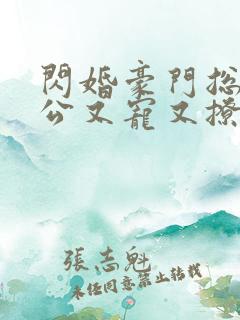 閃婚豪門总
公又寵又撩
張志魁
未任同意禁止转载